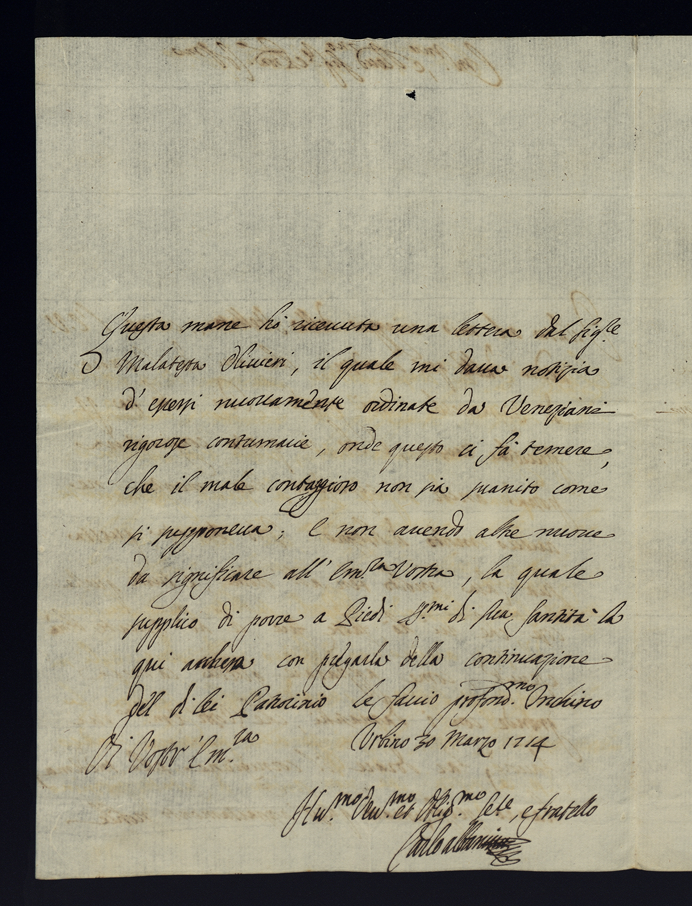 Questa mane hò riceuuta una lettera dal Sig.re
Malatesta Oliuieri, il quale mi daua notizia
d'essersi nuouamente ordinate da Veneziani
rigorose contumacie, onde questo ci fà temere,
che il male contaggioso non sia suanito come
si supponeua; e non auendo altre nuoue
da significare all' Em.za Vostra, la quale
supplico di porre a Piedi S.mi di sua Santità la
qui anhessa con pregarla della continuazione
del di lei Patrocinio le faccio profond.mo Inchino
Di Vostr' Em.za Vrbino 30 Marzo 1714
Hu.mo Deu.mo et Obbl.mo Se.re, e fratello
Carlo Albani